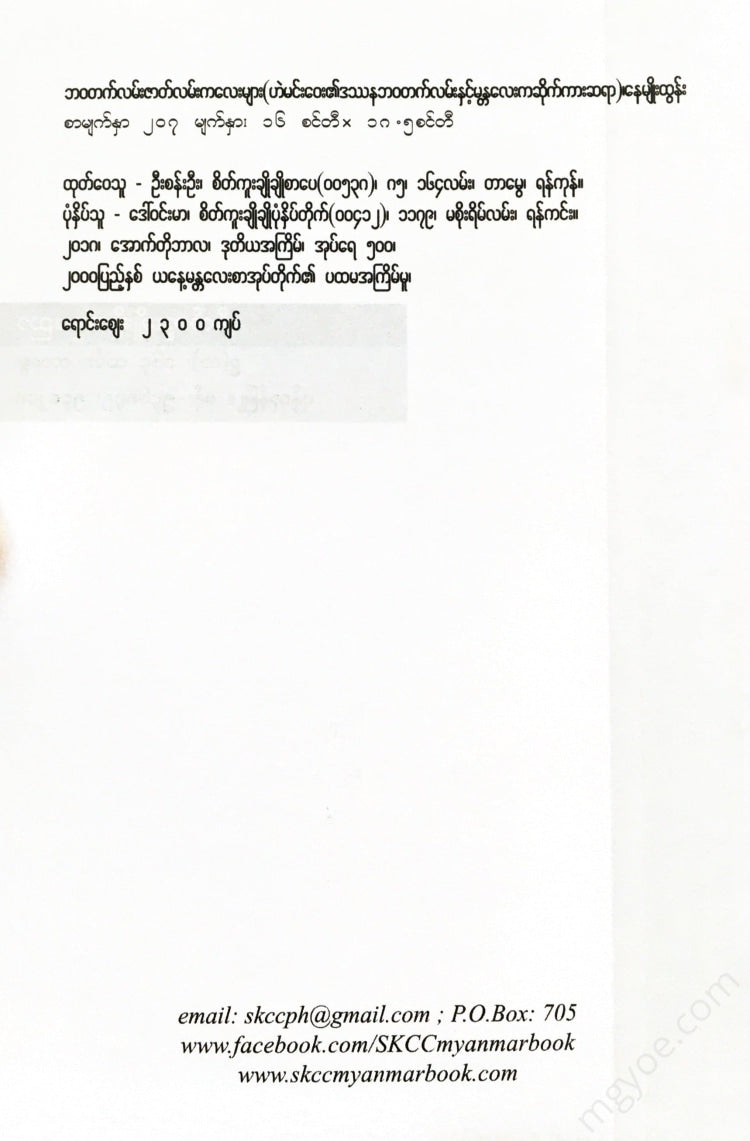 ဘဝတက်လမ်းဇာတ်လမ်းကလေးများ(ဟဲမင်းဝေး၏ဒဿနဘဝတက်လမ်းနှင့်မန္တလေးကဆိုက်ကားဆရာ)၊နေမျိုးထွန်း
စာမျက်နှာ ၂၀၇ မျက်နှာ၊ ၁၆ စင်တီ× ၁၈.၅စင်တီ
ထုတ်ဝေသူ - ဦးစန်းဦး၊ စိတ်ကူးချိုချိုစာပေ(၀၀၅၃၈)၊ ၈၅၊ ၁၆၄လမ်း၊ တာမွေ၊ ရန်ကုန်။
ပုံနှိပ်သူ - ဒေါ်ဝင်းမာ၊ စိတ်ကူးချိုချိုပုံနှိပ်တိုက်(၀၀၄၁၂)၊ ၁၁၇၉၊ မစိုးရိမ်လမ်း၊ ရန်ကင်း။
၂၀၁၈၊ အောက်တိုဘာလ၊ ဒုတိယအကြိမ်၊ အုပ်ရေ ၅၀၀၊
၂၀၀၀ပြည့်နှစ် ယနေ့မန္တလေးစာအုပ်တိုက်၏ ပထမအကြိမ်မူ၊
ရောင်းဈေး ၂ ၃ ၀ ၀ ကျပ်
email: skccph@gmail.com ; P.O.Box: 705
www.facebook.com/SKCCmyanmarbook
www.skccmyanmarbook.com
mgyoe.com